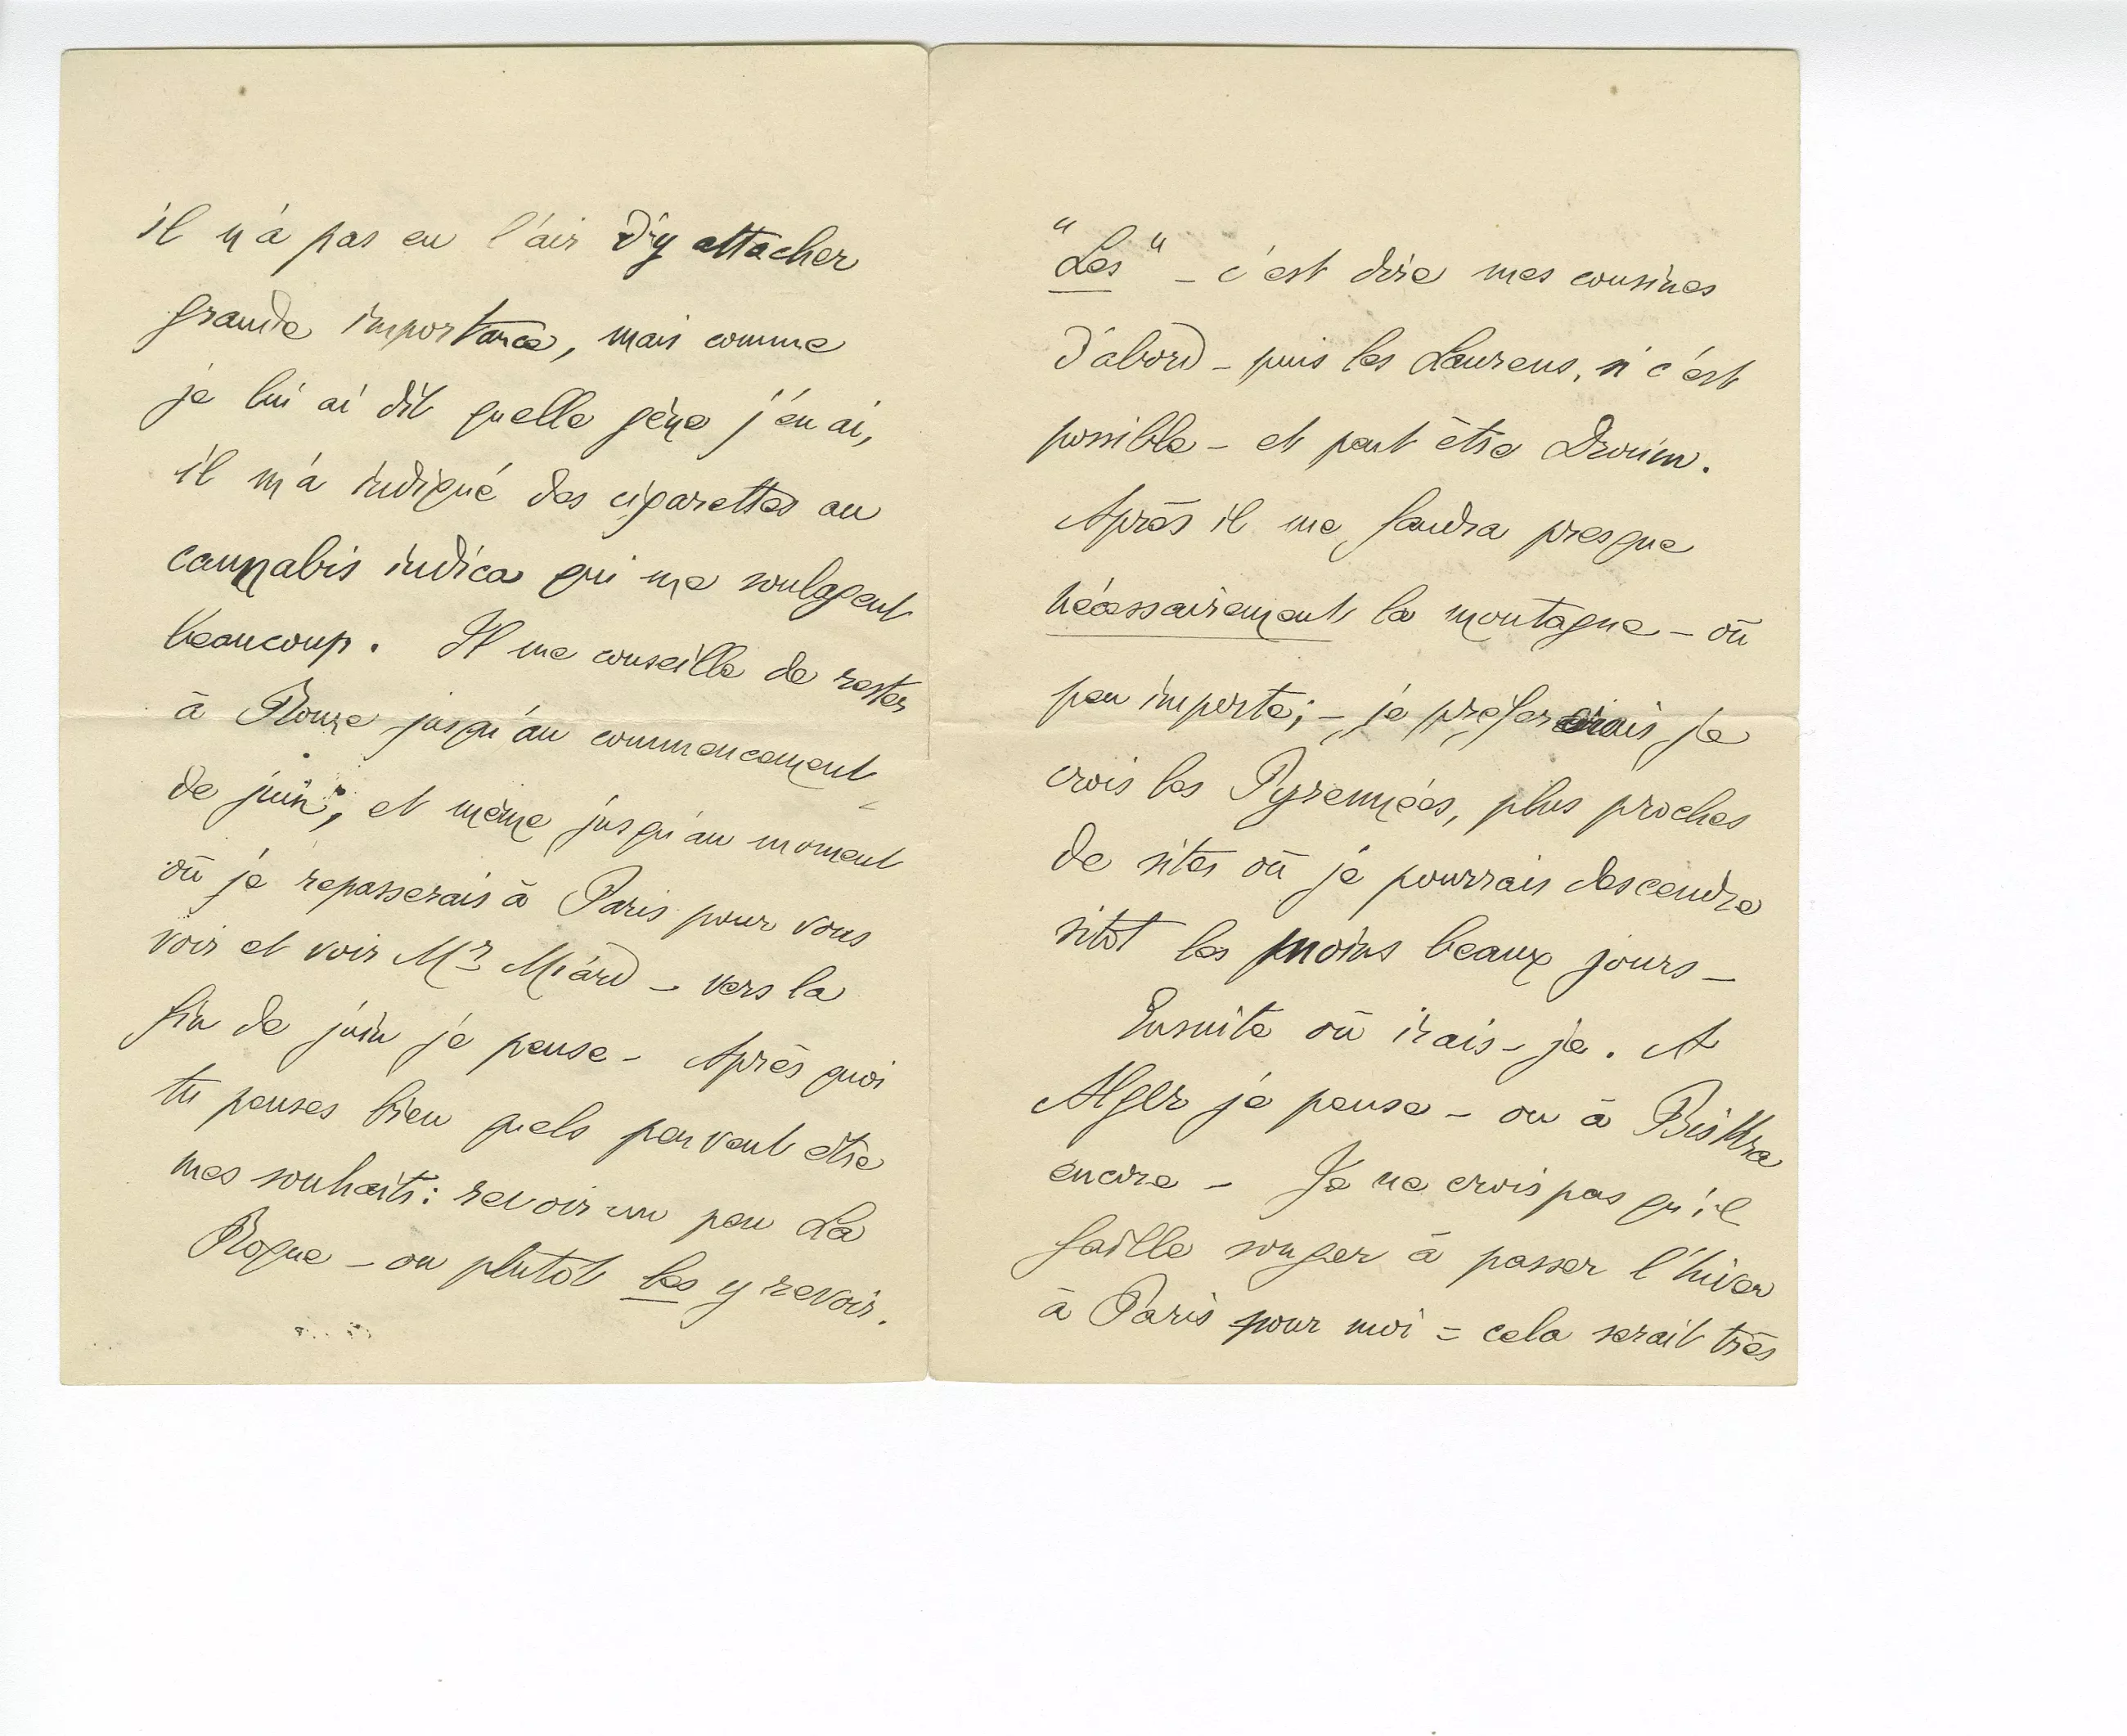 il n'a pas eu l'air d'y attacher
grande importance, mais comme
je lui ai dit quelle gène j'en ai,
il m'a indiqué des cigarettes au
cannabis indica qui me soulagent
beaucoup. Il me conseille de rester
à Rome jusqu'au commencement
de juin, et même jusqu'au moment
où je repasserais à Paris pour vous
voir et voir Mr - vers la
fin de juin je pense - Après quoi
tu penses bien quels peuvent être
mes souhaits : revoir un peu La
Roque - ou plutôt les y revoir.
"Les" - c'est dire mes cousines
d'abord - puis les Laurens, si c'est
possible - et peut être Drouin.
Après il me faudra presque
nécessairement la montagne - où
peu importe ; - je préfererais je
crois les Pyrennées, plus proches
de sites où je pourrais descendre
sitôt les moins beaux jours -
Ensuite où irais-je. A
Alger je pense - ou à Biskra
encore - Je ne crois pas qu'il
faille songer à passer l'hiver
à Paris pour moi = cela serait très